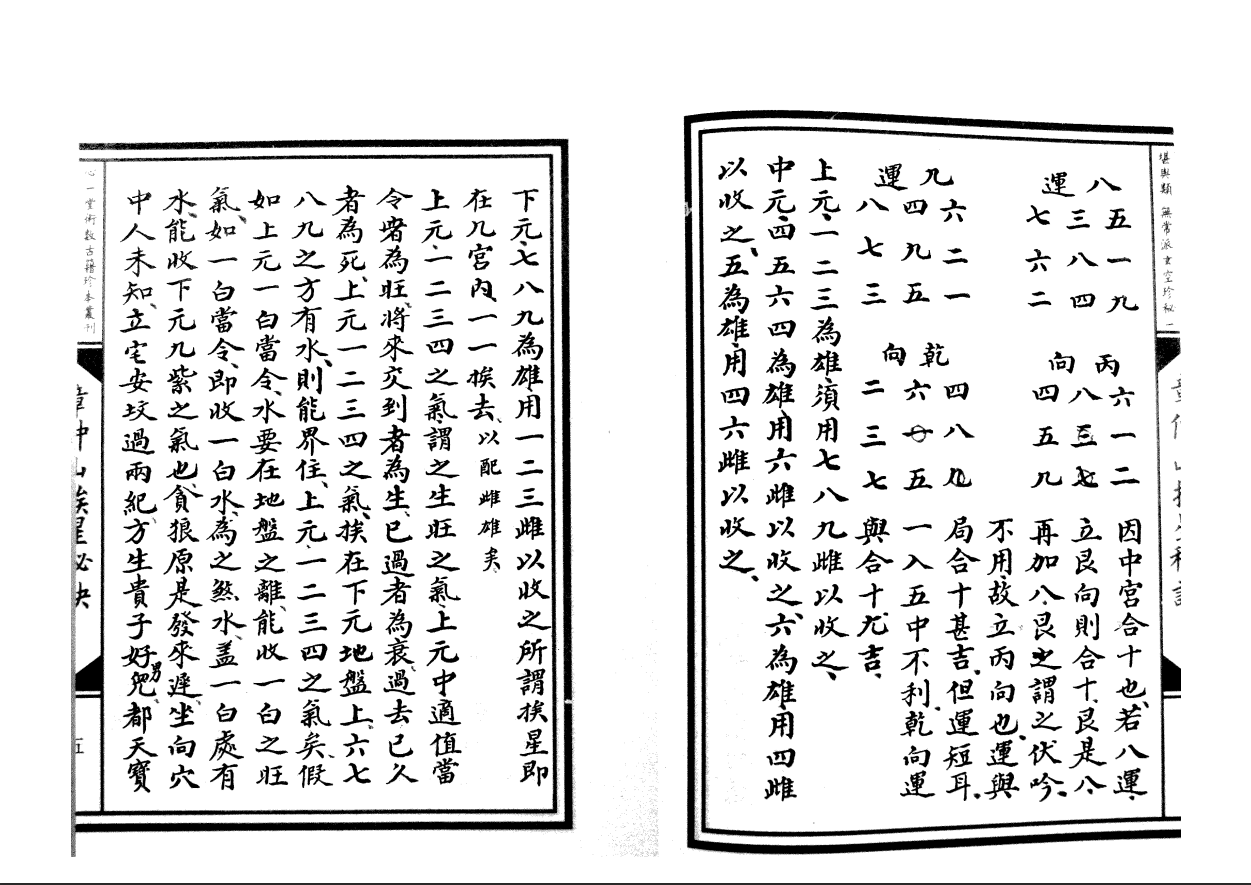 堪輿類 無常派玄空珍秘 一
八運 丙向
五一九 六一二 因中宮合十也、若八運、
三八四 八三七 立艮向則合十、艮是八、
七六二 四五九 再加八、艮之謂之伏吟、
不用、故立丙向也、運與
九運 乾向
六二一 四八九 局合十甚吉、但運短耳、
四九五 六 五 一入五中不利、乾向運
八七三 二三七 與合十、九吉、
上元、一二三為雄須用七八九雌以收之、
中元、四五六四為雄、用六雌以收之、六為雄、用四雌
以收之、五為雄、用四六雌以收之、
下元、七八九為雄、用一二三雌以收之所謂挨星即
在九宮內、一一挨去、以配雌雄矣、
上元、一二三四之氣、謂之生旺之氣、上元中適值當
令者為旺、將來交到者為生、已過者為衰、過去已久
者為死、上元一二三四之氣、挨在下元地盤上、六七
八九之方有水、則能界住、上元、一二三四之氣矣、假
如上元一白當令、水要在地盤之離、能收一白之旺
氣、如一白當令、即收一白水、為之煞水、蓋一白處有
水、能收下元九紫之氣也、貪狼原是發來遲、坐向穴
中人未知、立宅安坟過兩紀、方生貴子好男兒、都天寶
心一堂術數古籍珍本叢刊
章仲山挨星秘訣
五